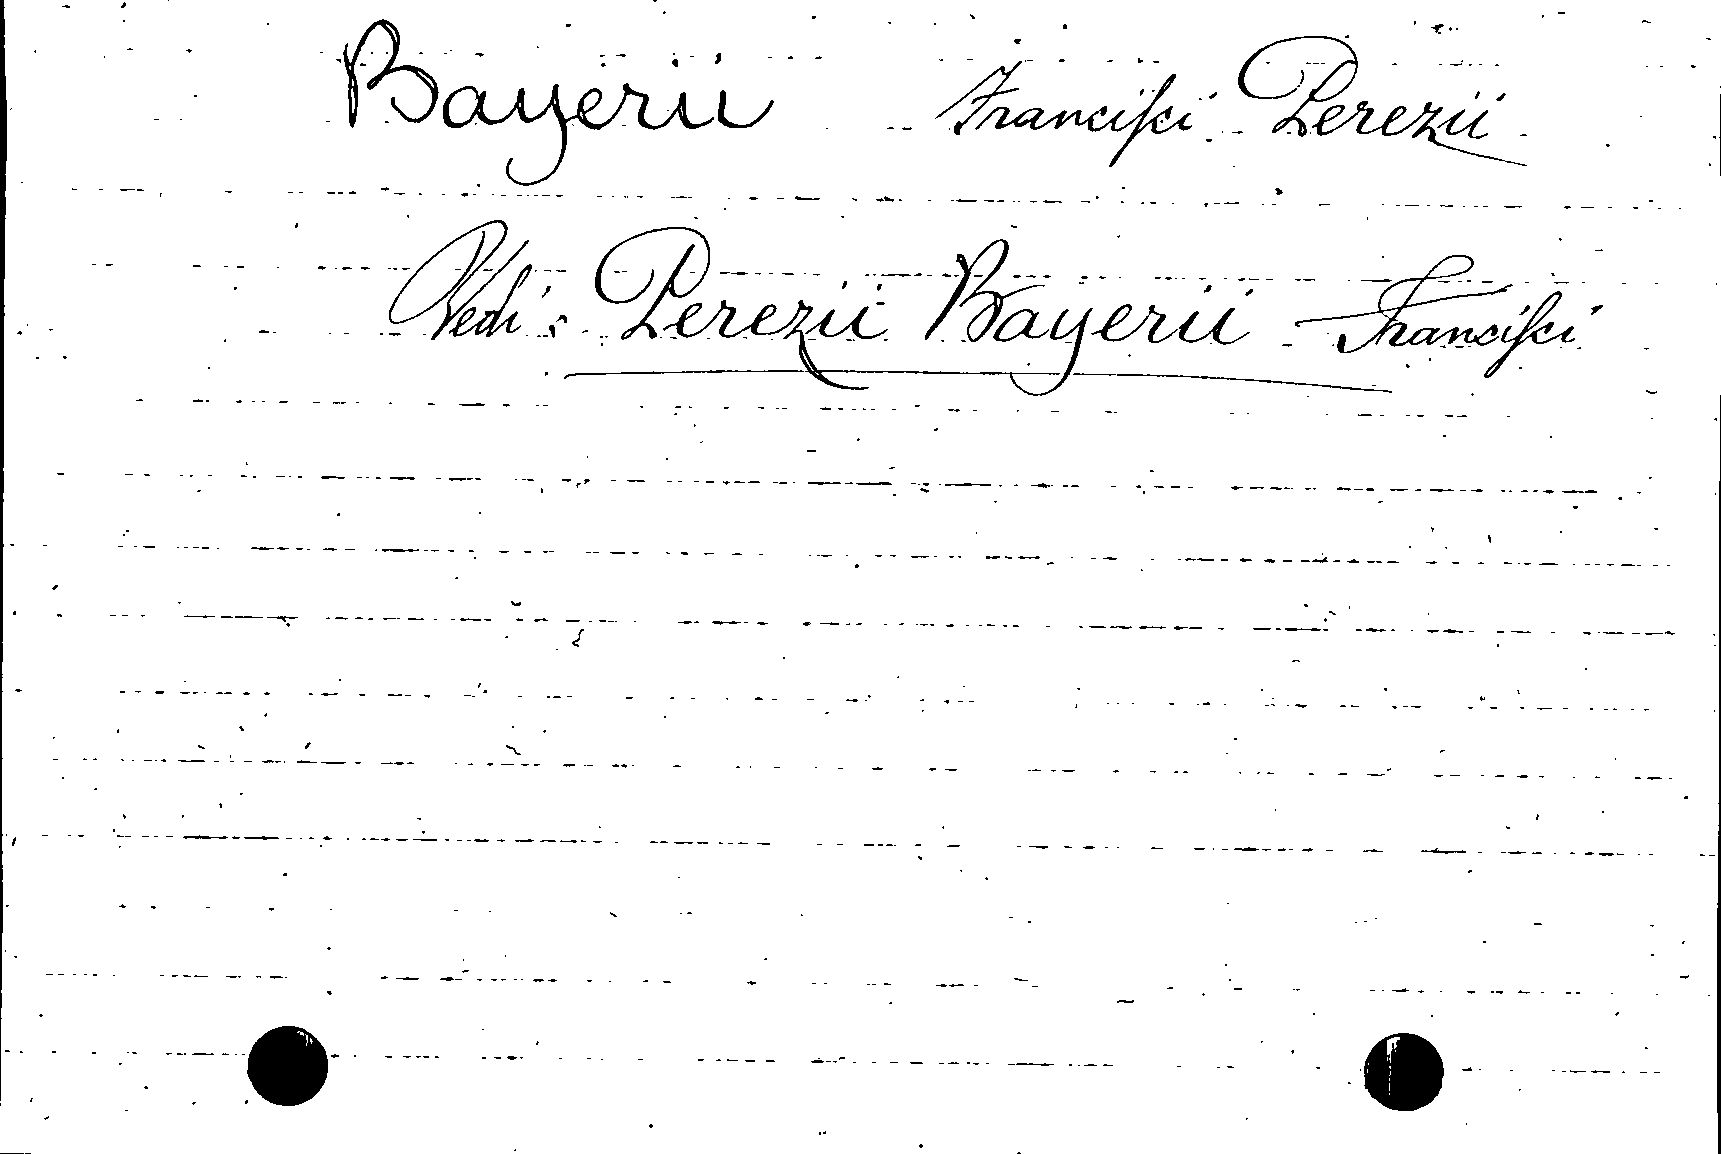 Bayerii Franciſci Perezii
Vedi: Perezii Bayerii Franciſci